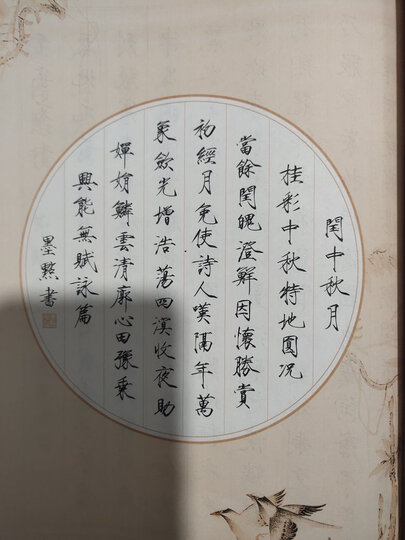 閏中秋月
桂彩中秋特地圓况
當餘閏魄澄鮮因懷勝賞
初經月免使詩人嘆隔年萬
象斂光增浩蕩四溟收夜助
嬋娟鱗雲清廓心田豫乘
興能無賦詠篇
墨書